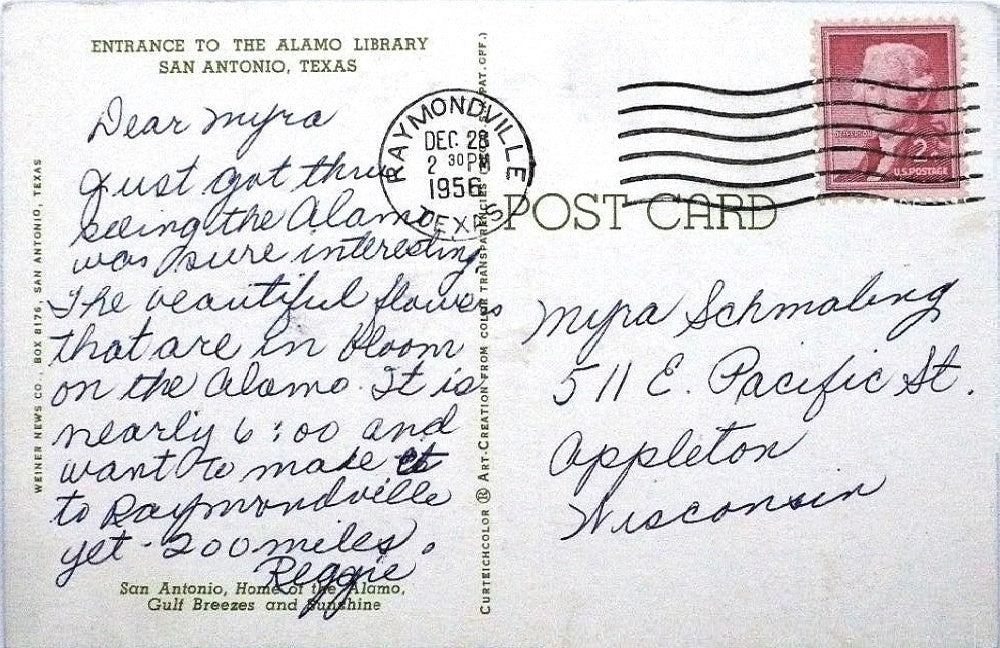 ENTRANCE TO THE ALAMO LIBRARY
SAN ANTONIO, TEXAS
Dear Myra
Just got thru
seeing the Alamo
was sure interesting
The beautiful flowers
that are in bloom
on the Alamo. It is
nearly 6:00 and
want to make it
to Raymondville
yet - 200 miles.
Reggie
San Antonio, Home of the Alamo,
Gulf Breezes and Sunshine
WEINER NEWS CO., BOX 8176, SAN ANTONIO, TEXAS
CURTEICHCOLOR ® ART-CREATION FROM COLOR TRANSPARENCIES PAT. OFF.)
RAYMONDVILLE
DEC 28
2 30 PM
1956
TEXAS
POST CARD
JEFFERSON
2¢
U.S. POSTAGE
Myra Schmaling
511 E. Pacific St.
Appleton
Wisconsin